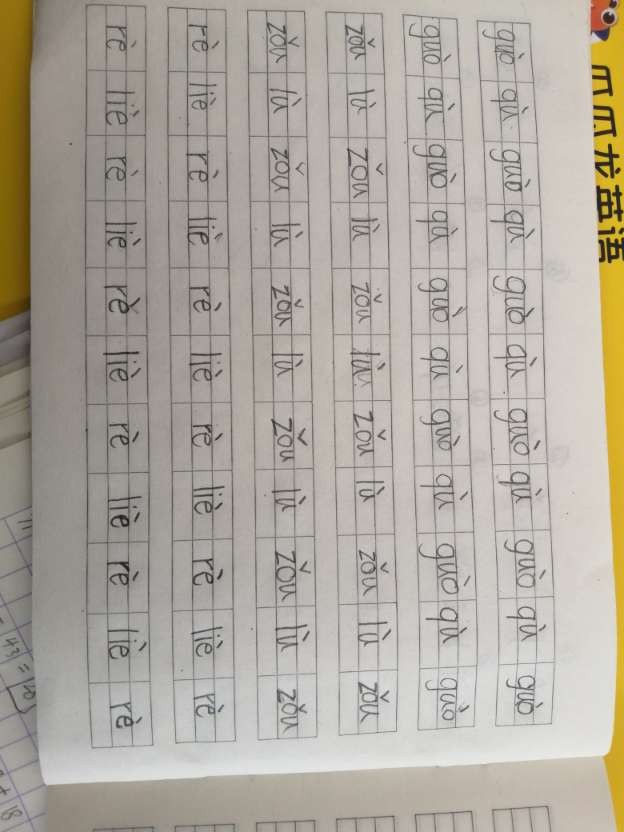 瓜瓜龙英语
guò qù guò qù guò qù guò qù guò qù guò
guò qù guò qù guò qù guò qù guò qù guò
zǒu lù zǒu lù zǒu lù zǒu lù zǒu lù zǒu
zǒu lù zǒu lù zǒu lù zǒu lù zǒu lù zǒu
rè liè rè liè rè liè rè liè rè liè rè
rè liè rè liè rè liè rè liè rè liè rè